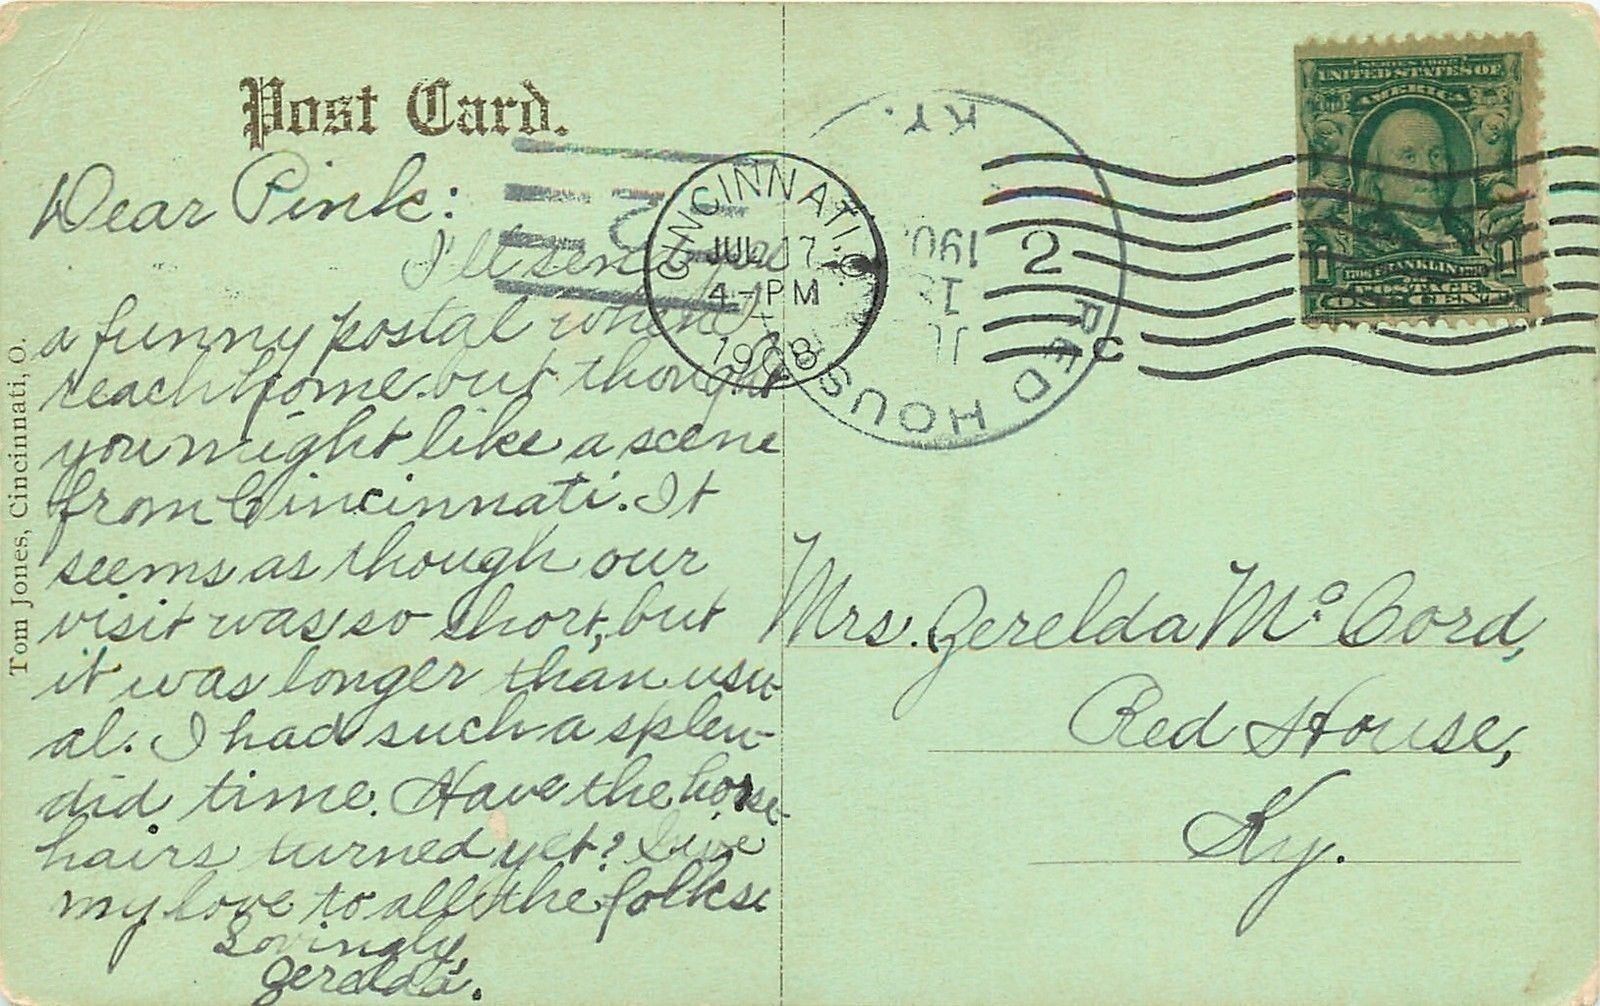 Post Card.
Dear Pink:
I'll send you
a funny postal when I
reach home but thought
you might like a scene
from Cincinnati. It
seems as though our
visit was so short, but
it was longer than usu-
al. I had such a splen-
did time. Have the horse-
hairs turned yet? Give
my love to all the folks.
Lovingly,
Zerelda.
Tom Jones, Cincinnati, O.
CINCINNATI, O.
JUL 17
4-PM
1908
RED HOUSE
KY.
190
2
C
SERIES 1902
UNITED STATES OF
AMERICA
1 1
FRANKLIN
POSTAGE
ONE CENT
Mrs. Zerelda McCord,
Red House,
Ky.